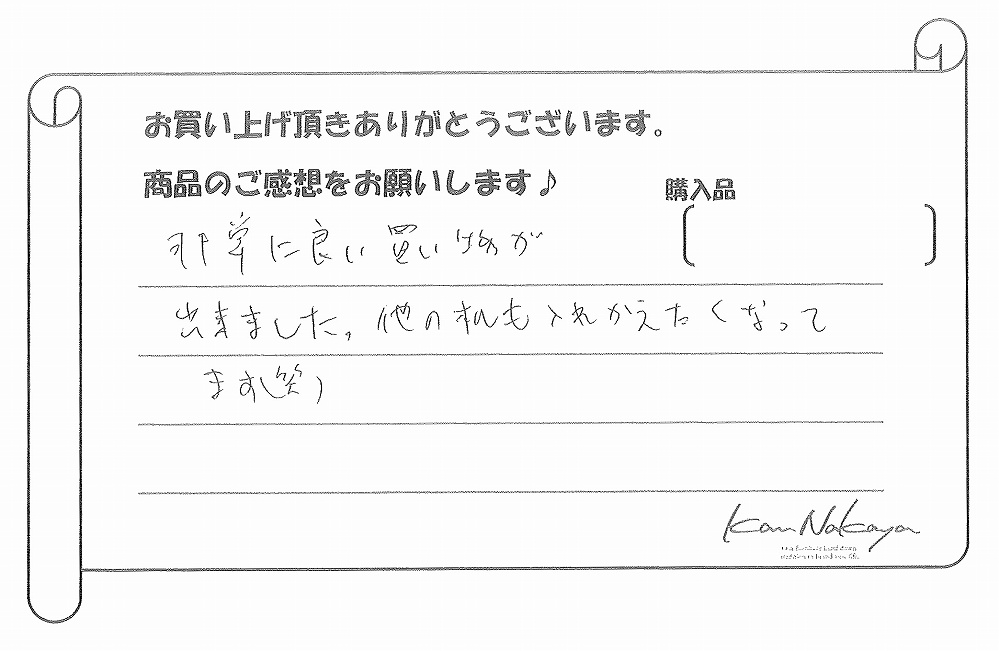 お買い上げ頂きありがとうございます。
商品のご感想をお願いします♪
購入品
非常に良い買い物が
出来ました。他の机も入れかえたくなって
ます(笑)
Kan Nakaya